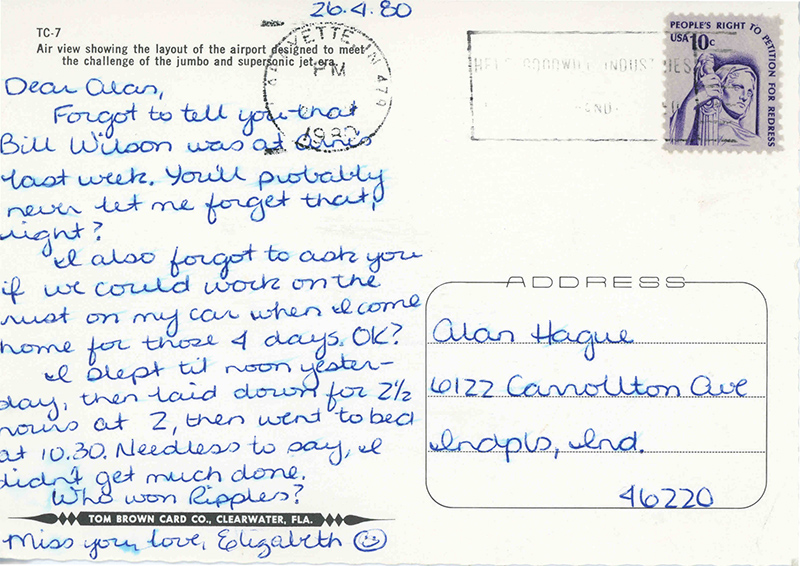 26.4.80
TC-7
Air view showing the layout of the airport designed to meet
the challenge of the jumbo and supersonic jet era.
YETTE IN 479
PM
1980
HELP GOODWILL INDUSTRIES
PEOPLE'S RIGHT TO PETITION FOR REDRESS
USA 10c
Dear Alan,
Forgot to tell you that
Bill Wilson was at
last week. You'll probably
never let me forget that,
right?
I also forgot to ask you
if we could work on the
rust on my car when I come
home for those 4 days. OK?
I slept til noon yester-
day, then laid down for 2½
hours at 2, then went to bed
at 10.30. Needless to say, I
didn't get much done.
Who won Ripples?
TOM BROWN CARD CO., CLEARWATER, FLA.
Miss you love, Elizabeth ☺
ADDRESS
Alan Hague
6122 Carrollton Ave
Indpls, Ind.
46220